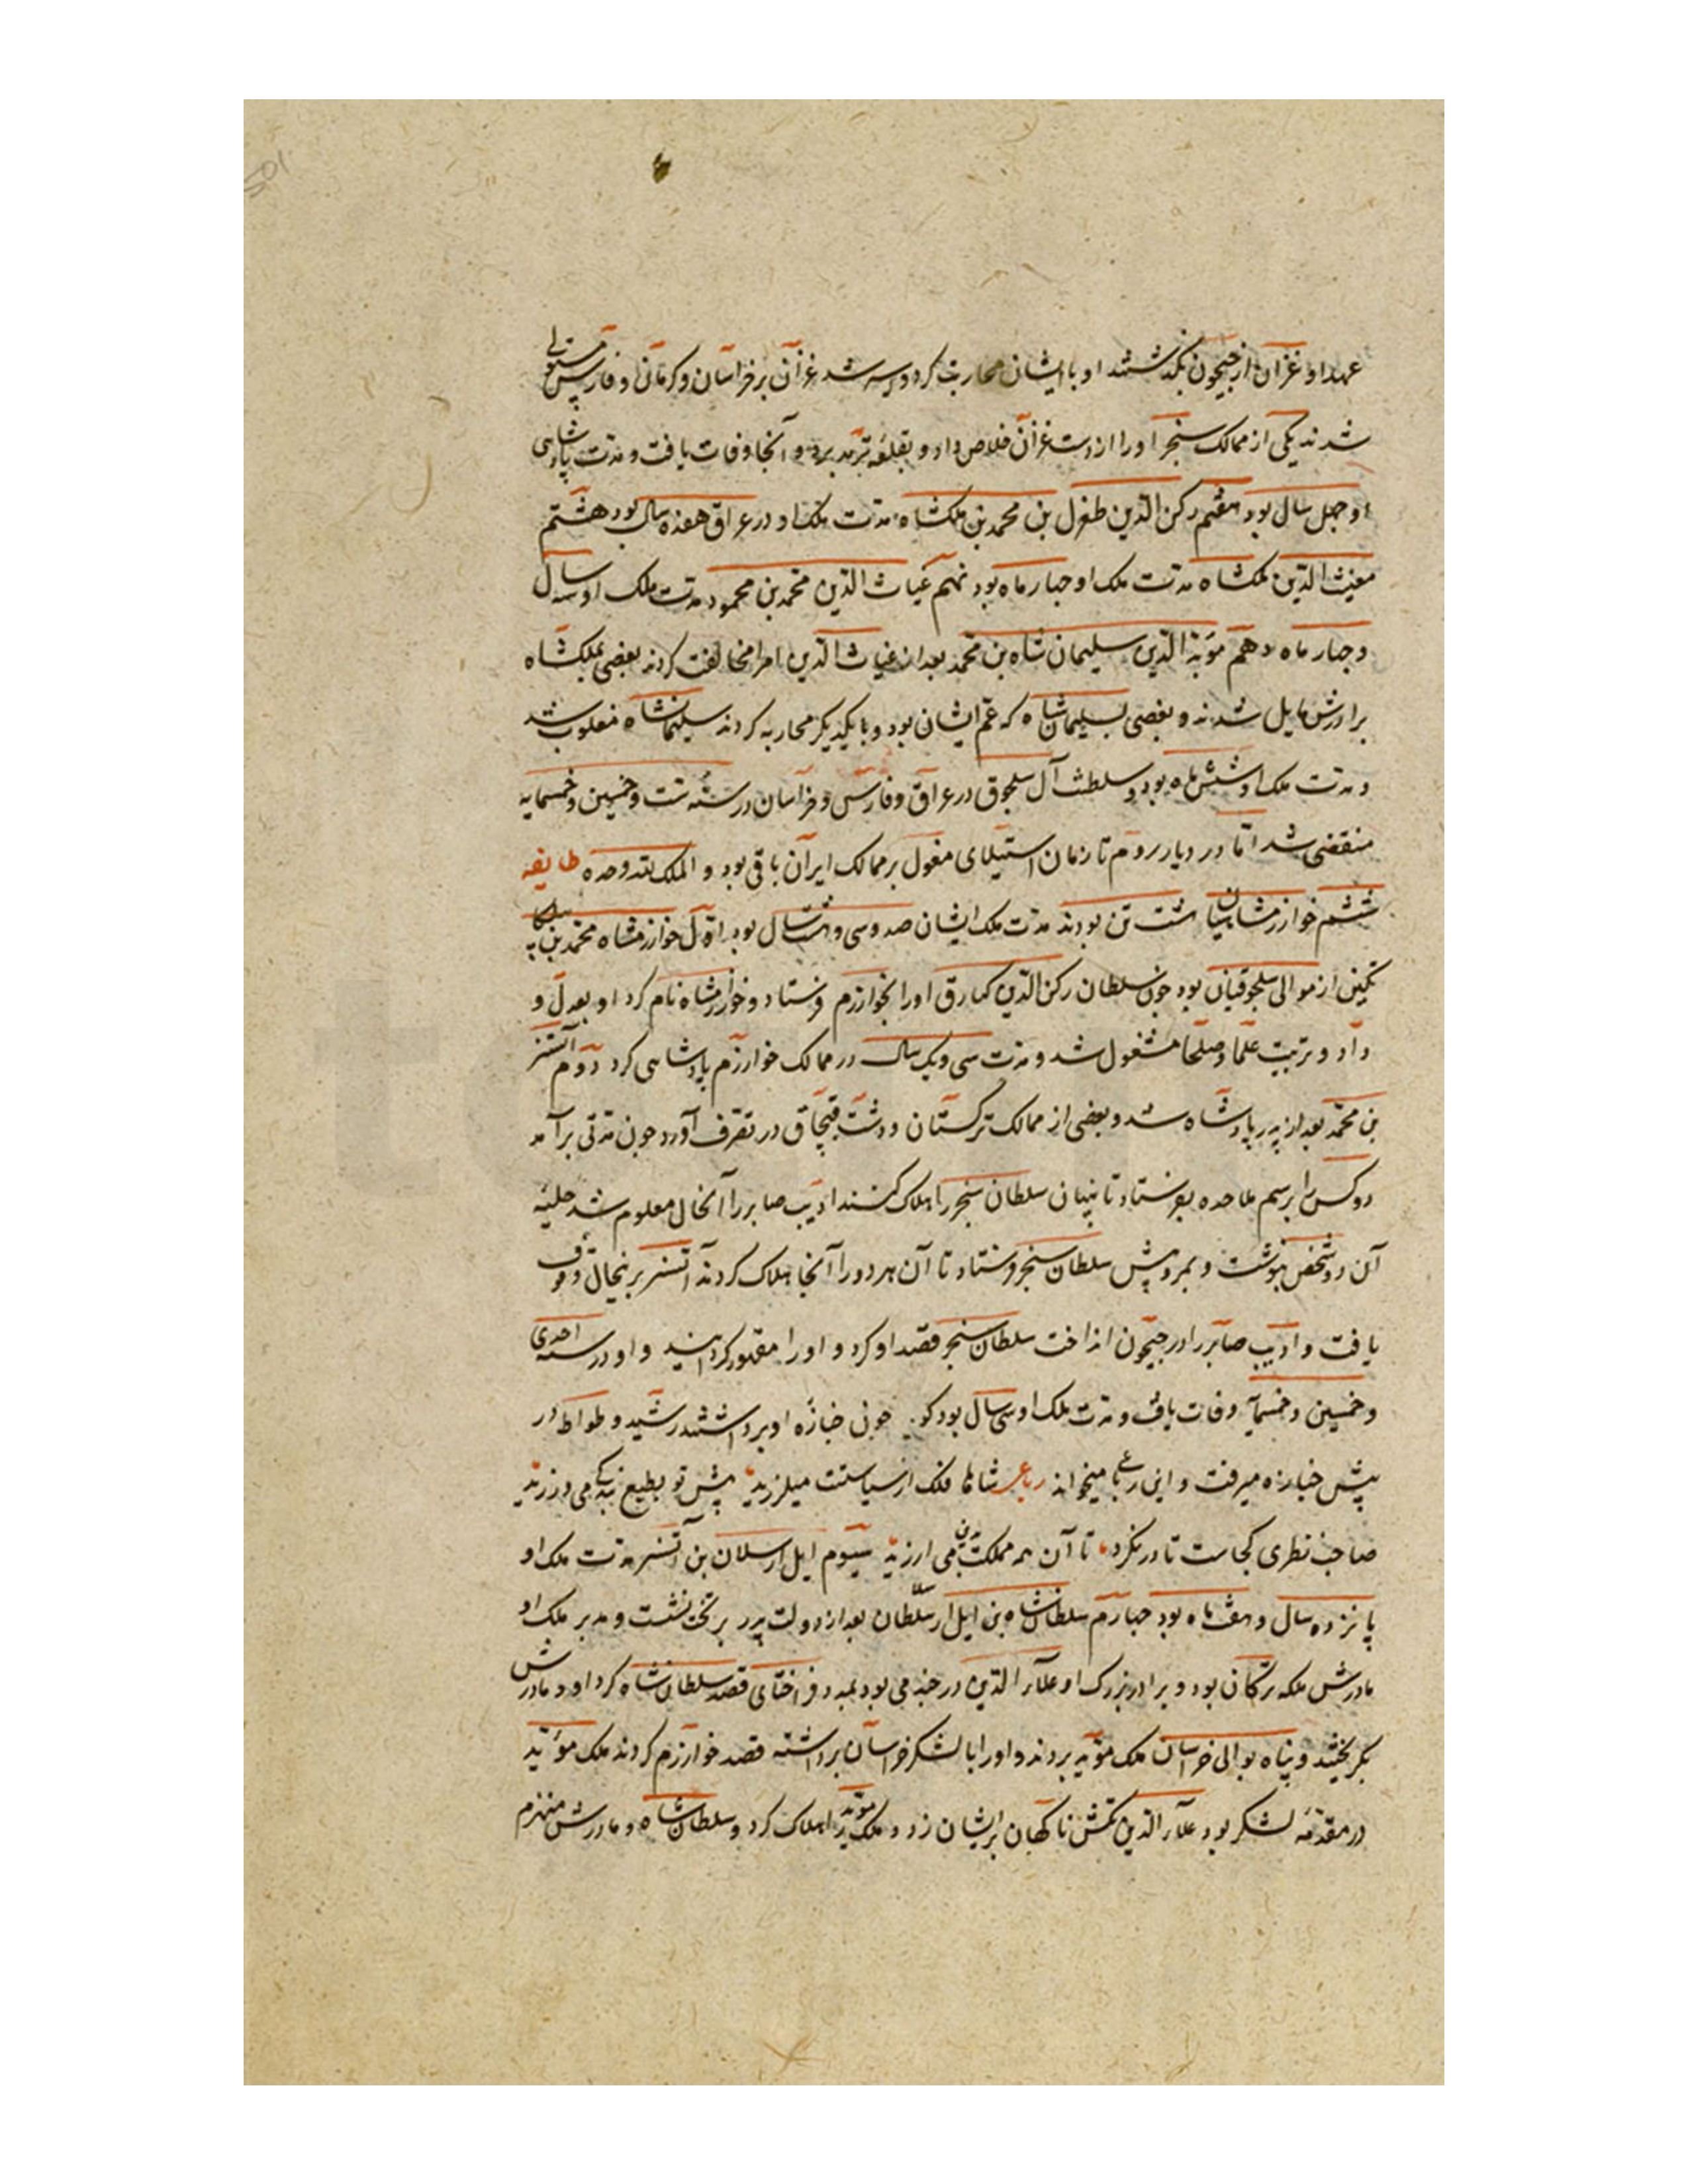 عهد او غزان از جیحون بگذشتند او با ایشان محاربت کرد و اسیر شد غزان بر خراسان و کرمان و فارس مستولی
شدند یکی از ممالک سنجر او را از دست غزان خلاص داد و بقلعه ترمد برد و آنجا وفات یافت و مدت پادشاهی
او جهل سال بود هفتم رکن الدین طغرل بن محمد بن ملکشاه مدت ملک او در عراق هفده سال بود هشتم
مغیث الدین ملکشاه مدت ملک او جهار ماه بود نهم غیاث الدین محمد بن محمود مدت ملک او سه سال
و جهار ماه دهم موید الدین سلیمان شاه بن محمد بعد از غیاث الدین امرا مخالفت کردند بعضی بملکشاه
برادرش مایل شدند و بعضی بسلیمان شاه که عم ایشان بود و با یکدیگر محاربه کردند سلیمانشاه مغلوب شد
و مدت ملک او شش ماه بود و سلطنت آل سلجوق در عراق و فارس و خراسان در سنه ست و خمسین و خمسمایه
منقضی شد اما در دیار روم تا زمان استیلای مغول بر ممالک ایران باقی بود و الملک لله وحده طایفه
ششم خوارزمشاهیان هشت تن بودند مدت ملک ایشان صد و سی و هشت سال بود اول خوارزمشاه محمد بن بلکا
تکین از موالی سلجوقیان بود جون سلطان رکن الدین کیارق او را بخوارزم فرستاد و خوارزمشاه نام کرد او بعدل و
داد و تربیت علما و صلحا مشغول شد و مدت سی و یک سال در ممالک خوارزم پادشاهی کرد دوم آتسز
بن محمد بعد از پدر پادشاه شد و بعضی از ممالک ترکستان و دشت قبچاق در تصرف آورد جون مدتی برآمد
دو کس را برسم ملاحده بفرستاد تا پنهان سلطان سنجر را هلاک کنند ادیب صابر را آنحال معلوم شد حلیه
آن دو شخص بنوشت و بمرو پیش سلطان سنجر فرستاد تا آن هر دو را آنجا هلاک کردند آتسز برینحال وقوف
یافت و ادیب صابر را در جیحون انداخت سلطان سنجر قصد او کرد و او را مقهور کردانید و او در سنه احدی
و خمسین و خمسمآیه وفات یافت و مدت ملک او سی سال بود کویند جون جنازه او برداشتند رشید وطواط در
پیش جنازه میرفت و این رباعی میخواند رباعی شاها فلک از سیاستت میلرزید پیش تو بطبع بندکی می ورزید
صاحب نظری کجاست تا در نکرد تا آن همه مملکت بدین می ارزید سیوم ایل ارسلان بن آتسز مدت ملک او
پانزده سال و هفت ماه بود جهارم سلطان شاه بن ایل ارسلان بعد از دولت پدر بر تخت نشست و مدبر ملک او
مادرش ملکه ترکان بود و برادر بزرک او علاء الدین در جند می بود بمدد قراختای قصد سلطان شاه کرد او و مادرش
بکریختند و پناه بوالی خراسان ملک موید بردند و او را با لشکر خراسان برداشته قصد خوارزم کردند ملک موید
در مقدمه لشکر بود علاء الدین تکش ناکهان بر ایشان زد و ملک موید را هلاک کرد و سلطان شاه و مادرش منهزم